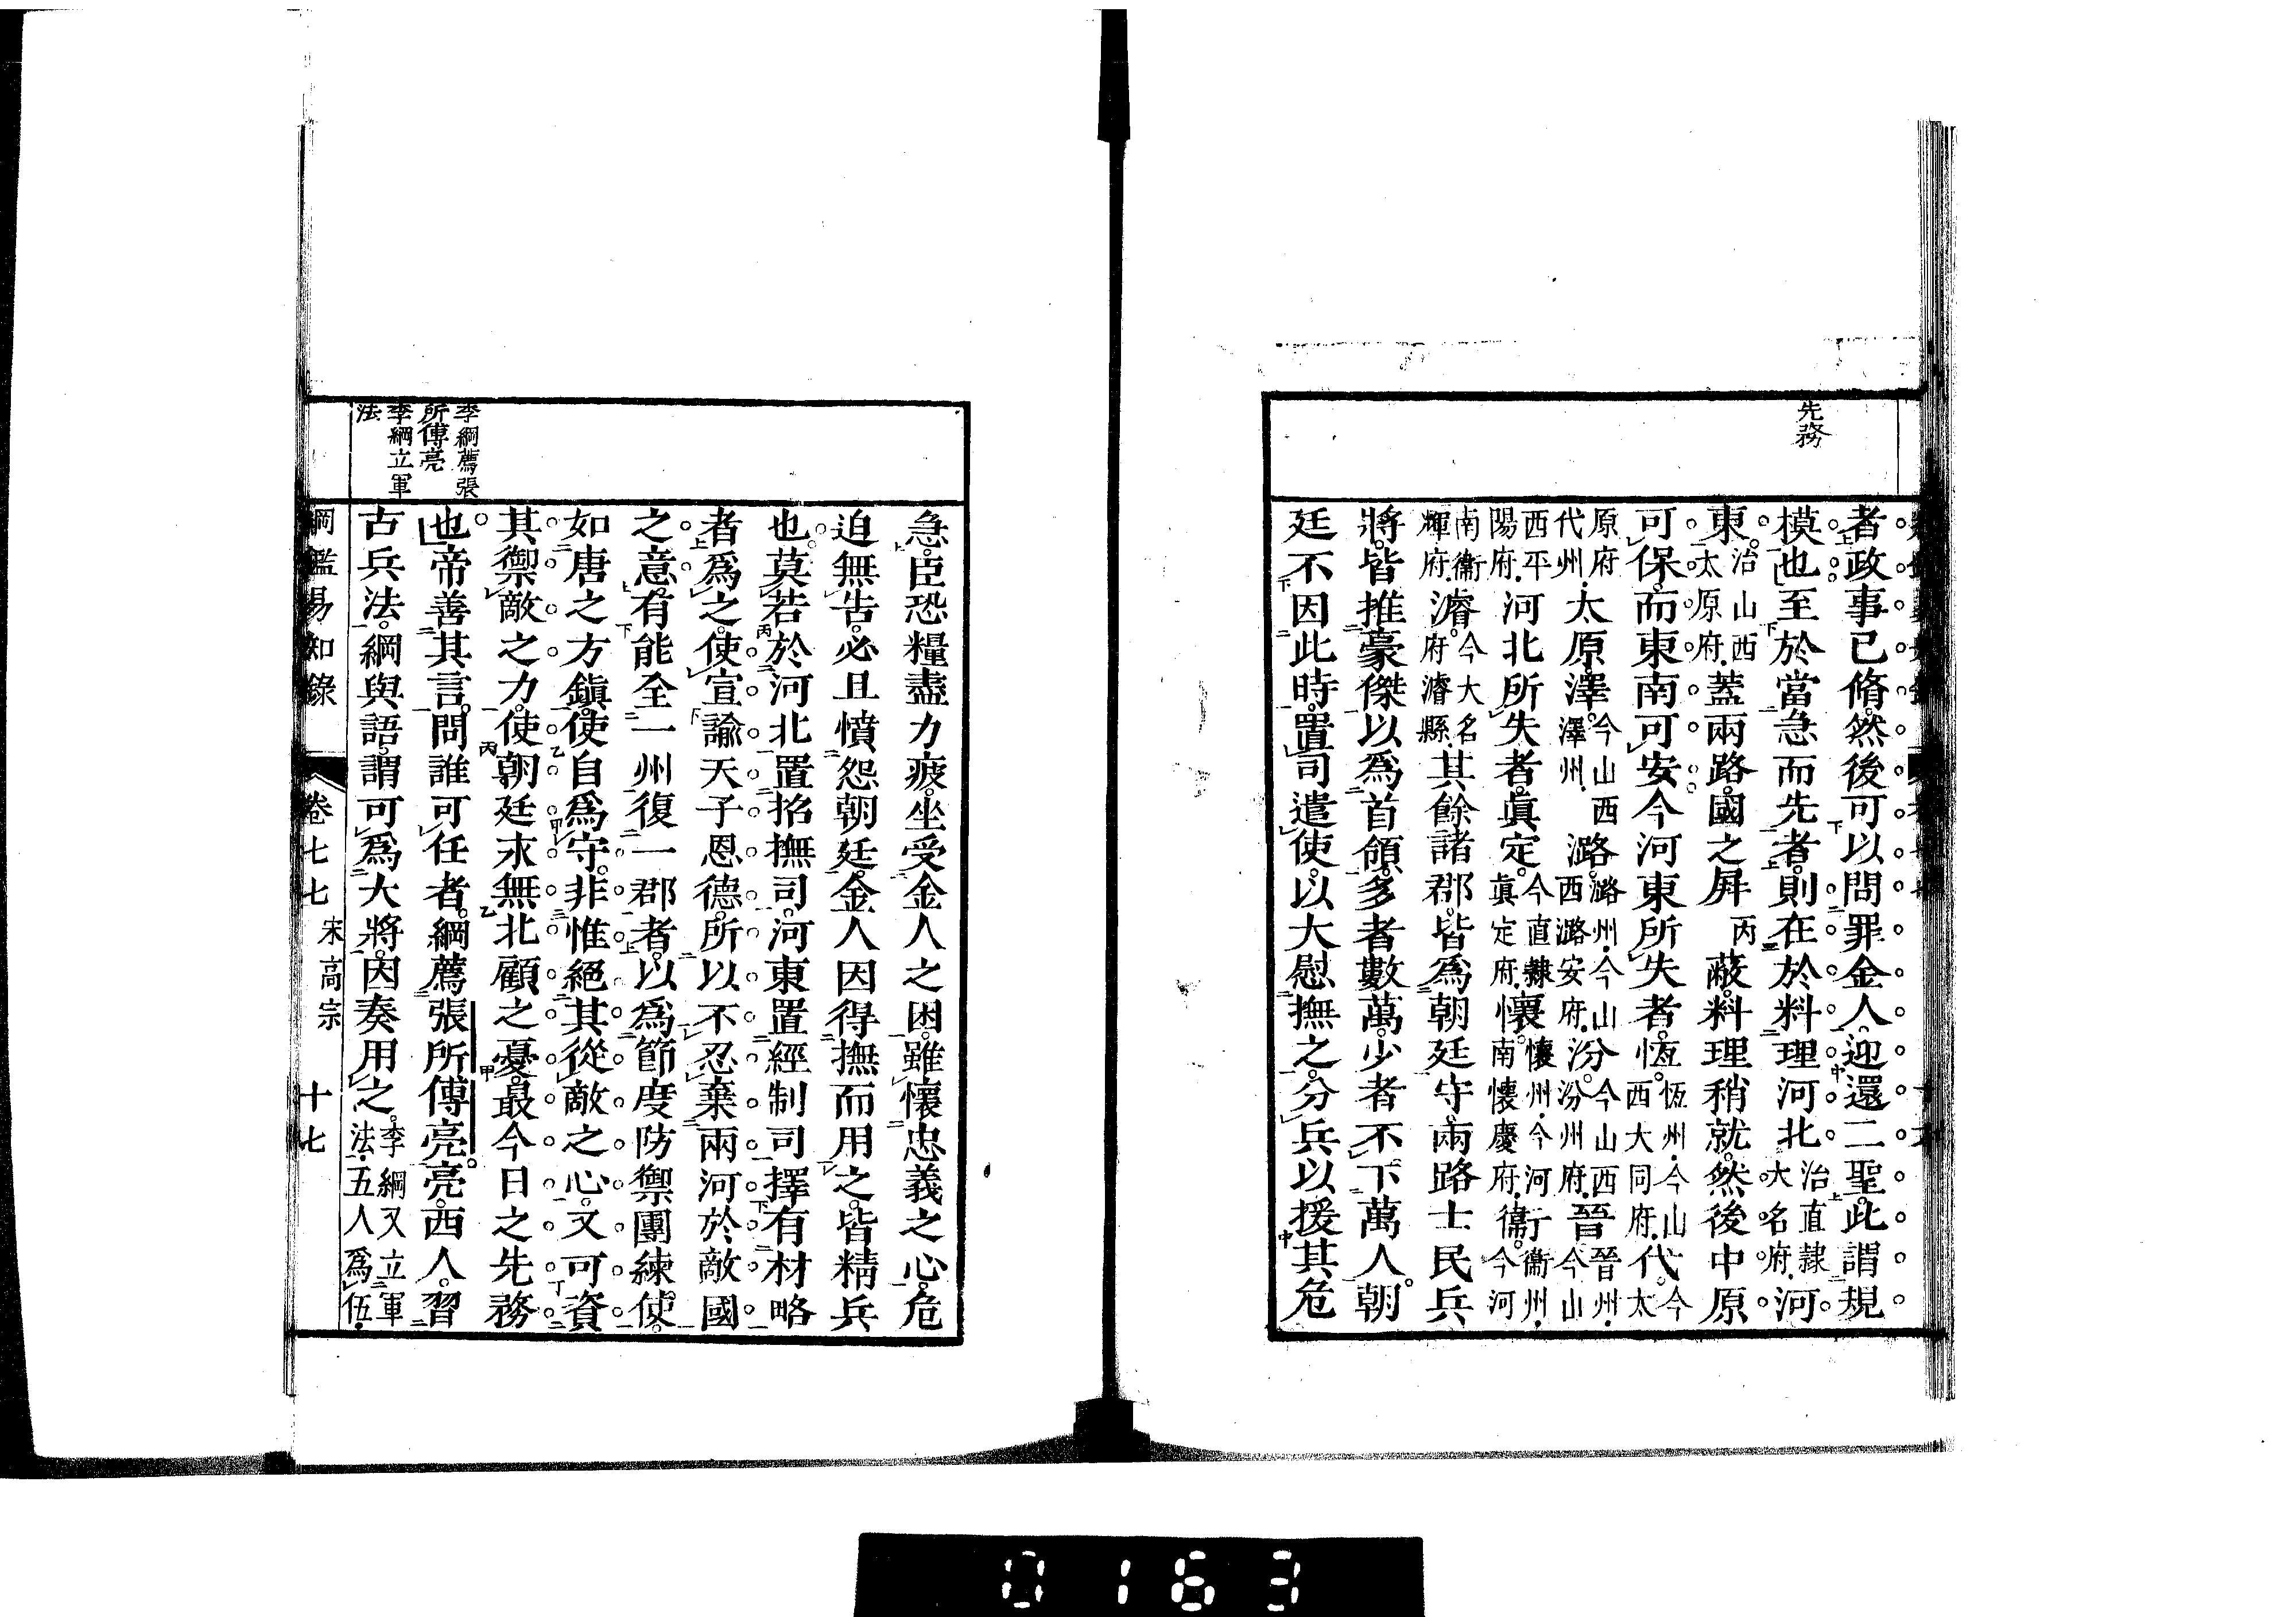 先務
者政事已脩然後可以問罪金人迎還二聖此謂規
模也至於當急而先者則在於料理河北治直隸大名府河
東治山西太原府蓋兩路國之屏蔽料理稍就然後中原
可保而東南可安今河東所失者恆恆州今山西大同府代今太
原府代州太原澤今山西澤州潞潞州今山西潞安府汾汾州今山西汾州府晉晉州今山
西平陽府河北所失者眞定今直隸眞定府懷懷州今河南懷慶府衞衞州今河
南衞輝府濬今大名府濬縣其餘諸郡皆爲朝廷守兩路士民兵
將皆推豪傑以爲首領多者數萬少者不下萬人朝
廷不因此時置司遣使以大慰撫之分兵以援其危
急臣恐糧盡力疲坐受金人之困雖懷忠義之心危
迫無告必且憤怨朝廷金人因得撫而用之皆精兵
也莫若於河北置招撫司河東置經制司擇有材略
者爲之使宣諭天子恩德所以不忍棄兩河於敵國
之意有能全一州復一郡者以爲節度防禦團練使
如唐之方鎭使自爲守非惟絕其從敵之心又可資
其禦敵之力使朝廷永無北顧之憂最今日之先務
也帝善其言問誰可任者綱薦張所傅亮亮西人習
古兵法綱與語謂可爲大將因奏用之李綱又立軍法五人爲伍
李綱薦張
所傅亮
李綱立軍
法
綱鑑易知錄 卷七七 宋高宗 十七